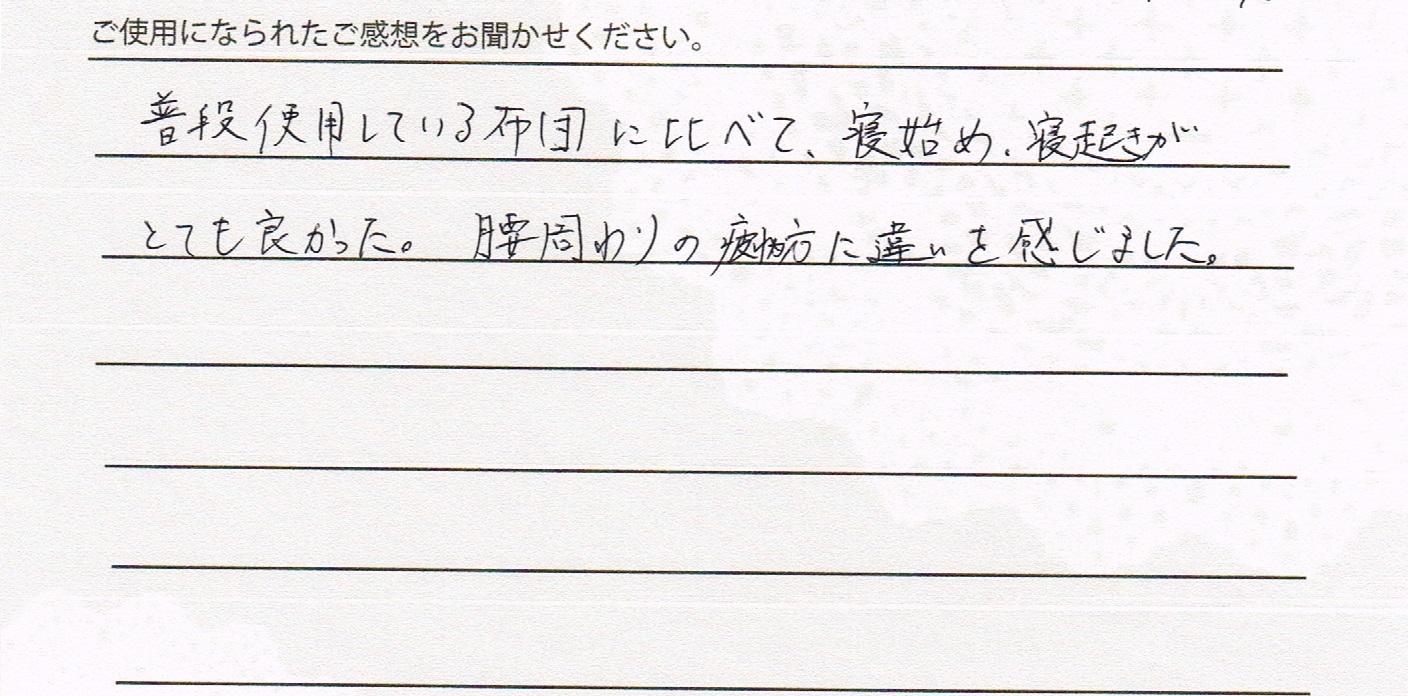 ご使用になられたご感想をお聞かせください。
普段使用している布団に比べて、寝始め、寝起きが
とても良かった。腰周りの疲れ方に違いを感じました。